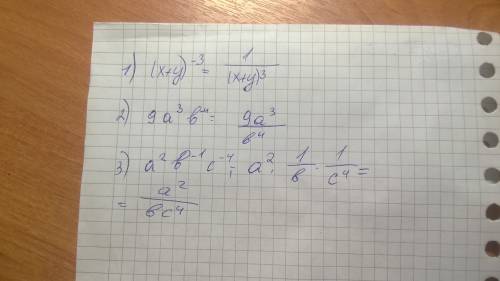 1) (x+y)⁻³ = 1/(x+y)³
2) 9a³b⁴ = 9a³/b⁴
3) a²b⁻¹c⁻⁴ = a² · 1/b · 1/c⁴ =
= a²/bc⁴